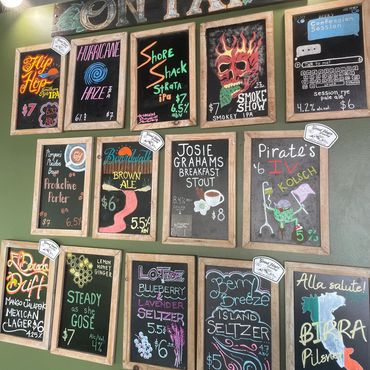 ON TAP
Hip
Hop
IPA
$7
HURRICANE
HAZE
6.8
$7
Shore
Shack
STRATA
IPA
$7
6.5%
SMOKE
SHOW
SMOKEY IPA
Confession
Session
session rye
pale ale
4.2%
$6
Productive
Porter
$7
6.5%
Boardwalk
BROWN
ALE
$6
5.5%
JOSIE
GRAHAMS
BREAKFAST
STOUT
$8
Pirate's
$6
I.V.
KÖLSCH
5%
Duff
MANGO JALAPEÑO
MEXICAN
LAGER $6
LEMON
HONEY
GINGER
STEADY
as she
GOSE
$7
BLUEBERRY
&
LAVENDER
SELTZER
5.5%
$6
Berry
Breeze
ISLAND
SELTZER
$5
Alla salute!
BIRRA
Pilsner